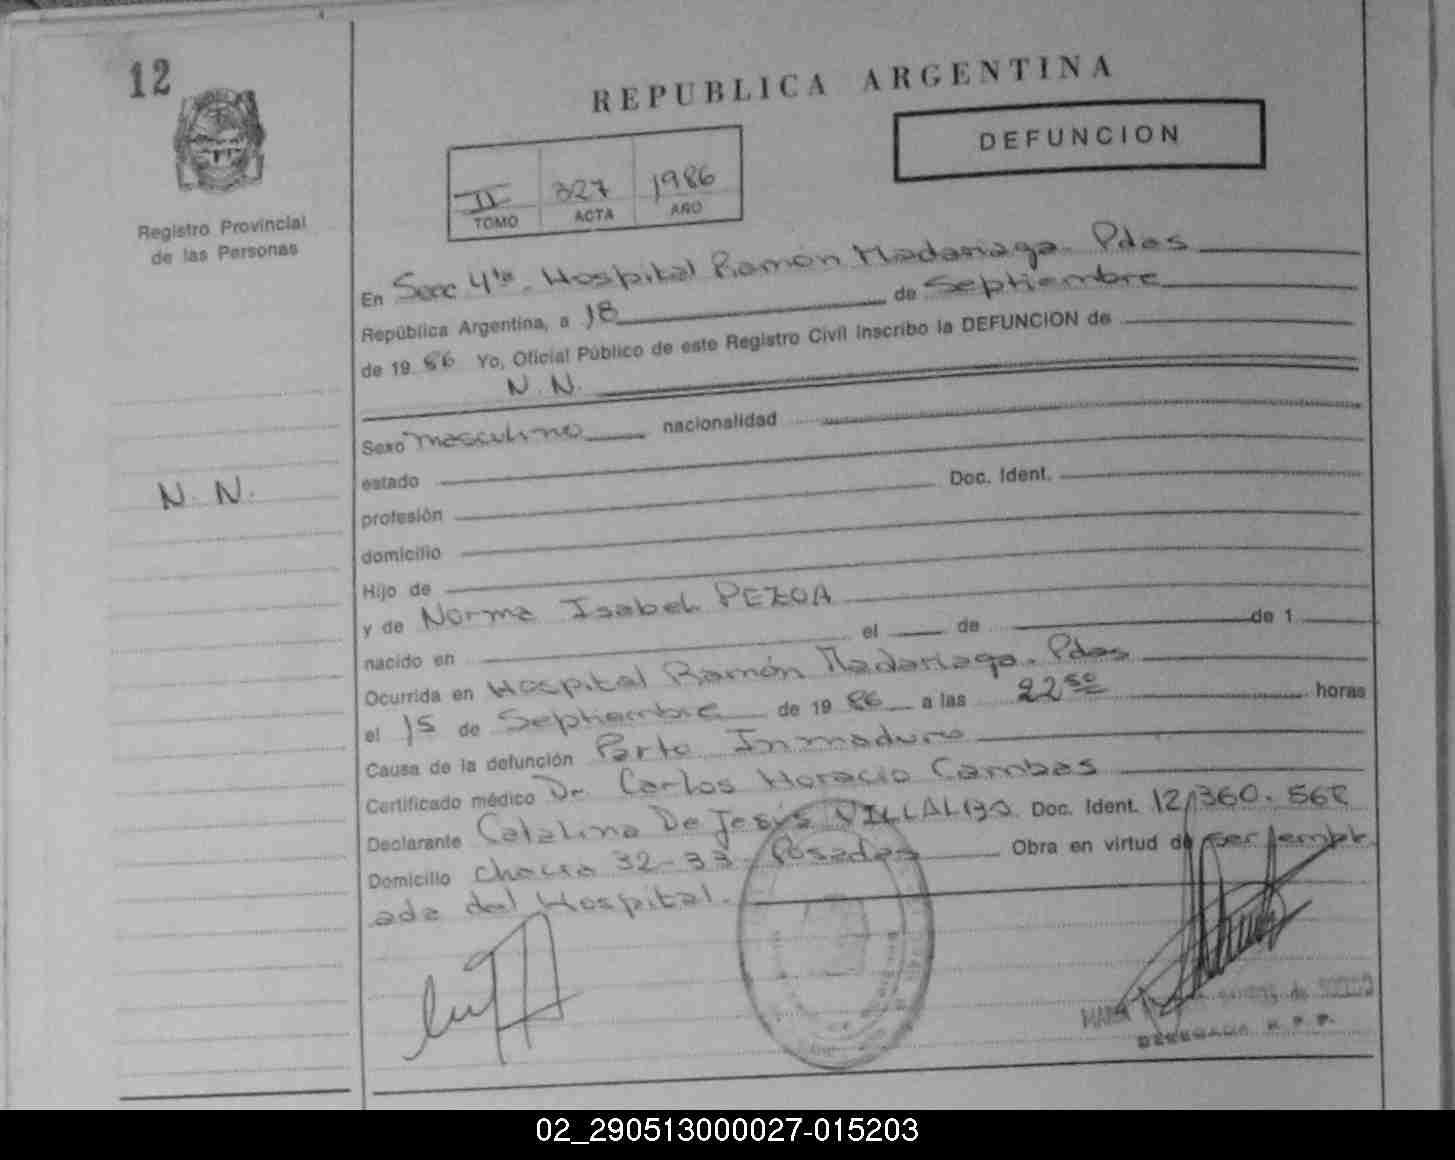 12
REPUBLICA ARGENTINA
DEFUNCION
II 327 1986
TOMO ACTA AÑO
Registro Provincial
de las Personas
En Secc 4ta. Hospital Ramón Madariaga. Pdas
República Argentina, a 18 de Septiembre
de 1986 Yo, Oficial Público de este Registro Civil inscribo la DEFUNCION de
N. N.
Sexo masculino nacionalidad
estado
N. N.
profesión Doc. Ident.
domicilio
Hijo de
y de Norma Isabel PEZOA
nacido en el de de 1
Ocurrida en Hospital Ramón Madariaga. Pdas
el 15 de Septiembre de 1986 a las 22 50 horas
Causa de la defunción Parto Inmaduro
Certificado médico Dr Carlos Horacio Cambas
Declarante Catalina De Jesús VILLALBA Doc. Ident. 12.360.568
Domicilio chacra 32-33 Posadas Obra en virtud de ser
ada del Hospital.
DELEGADA R.P.P.
02_290513000027-015203